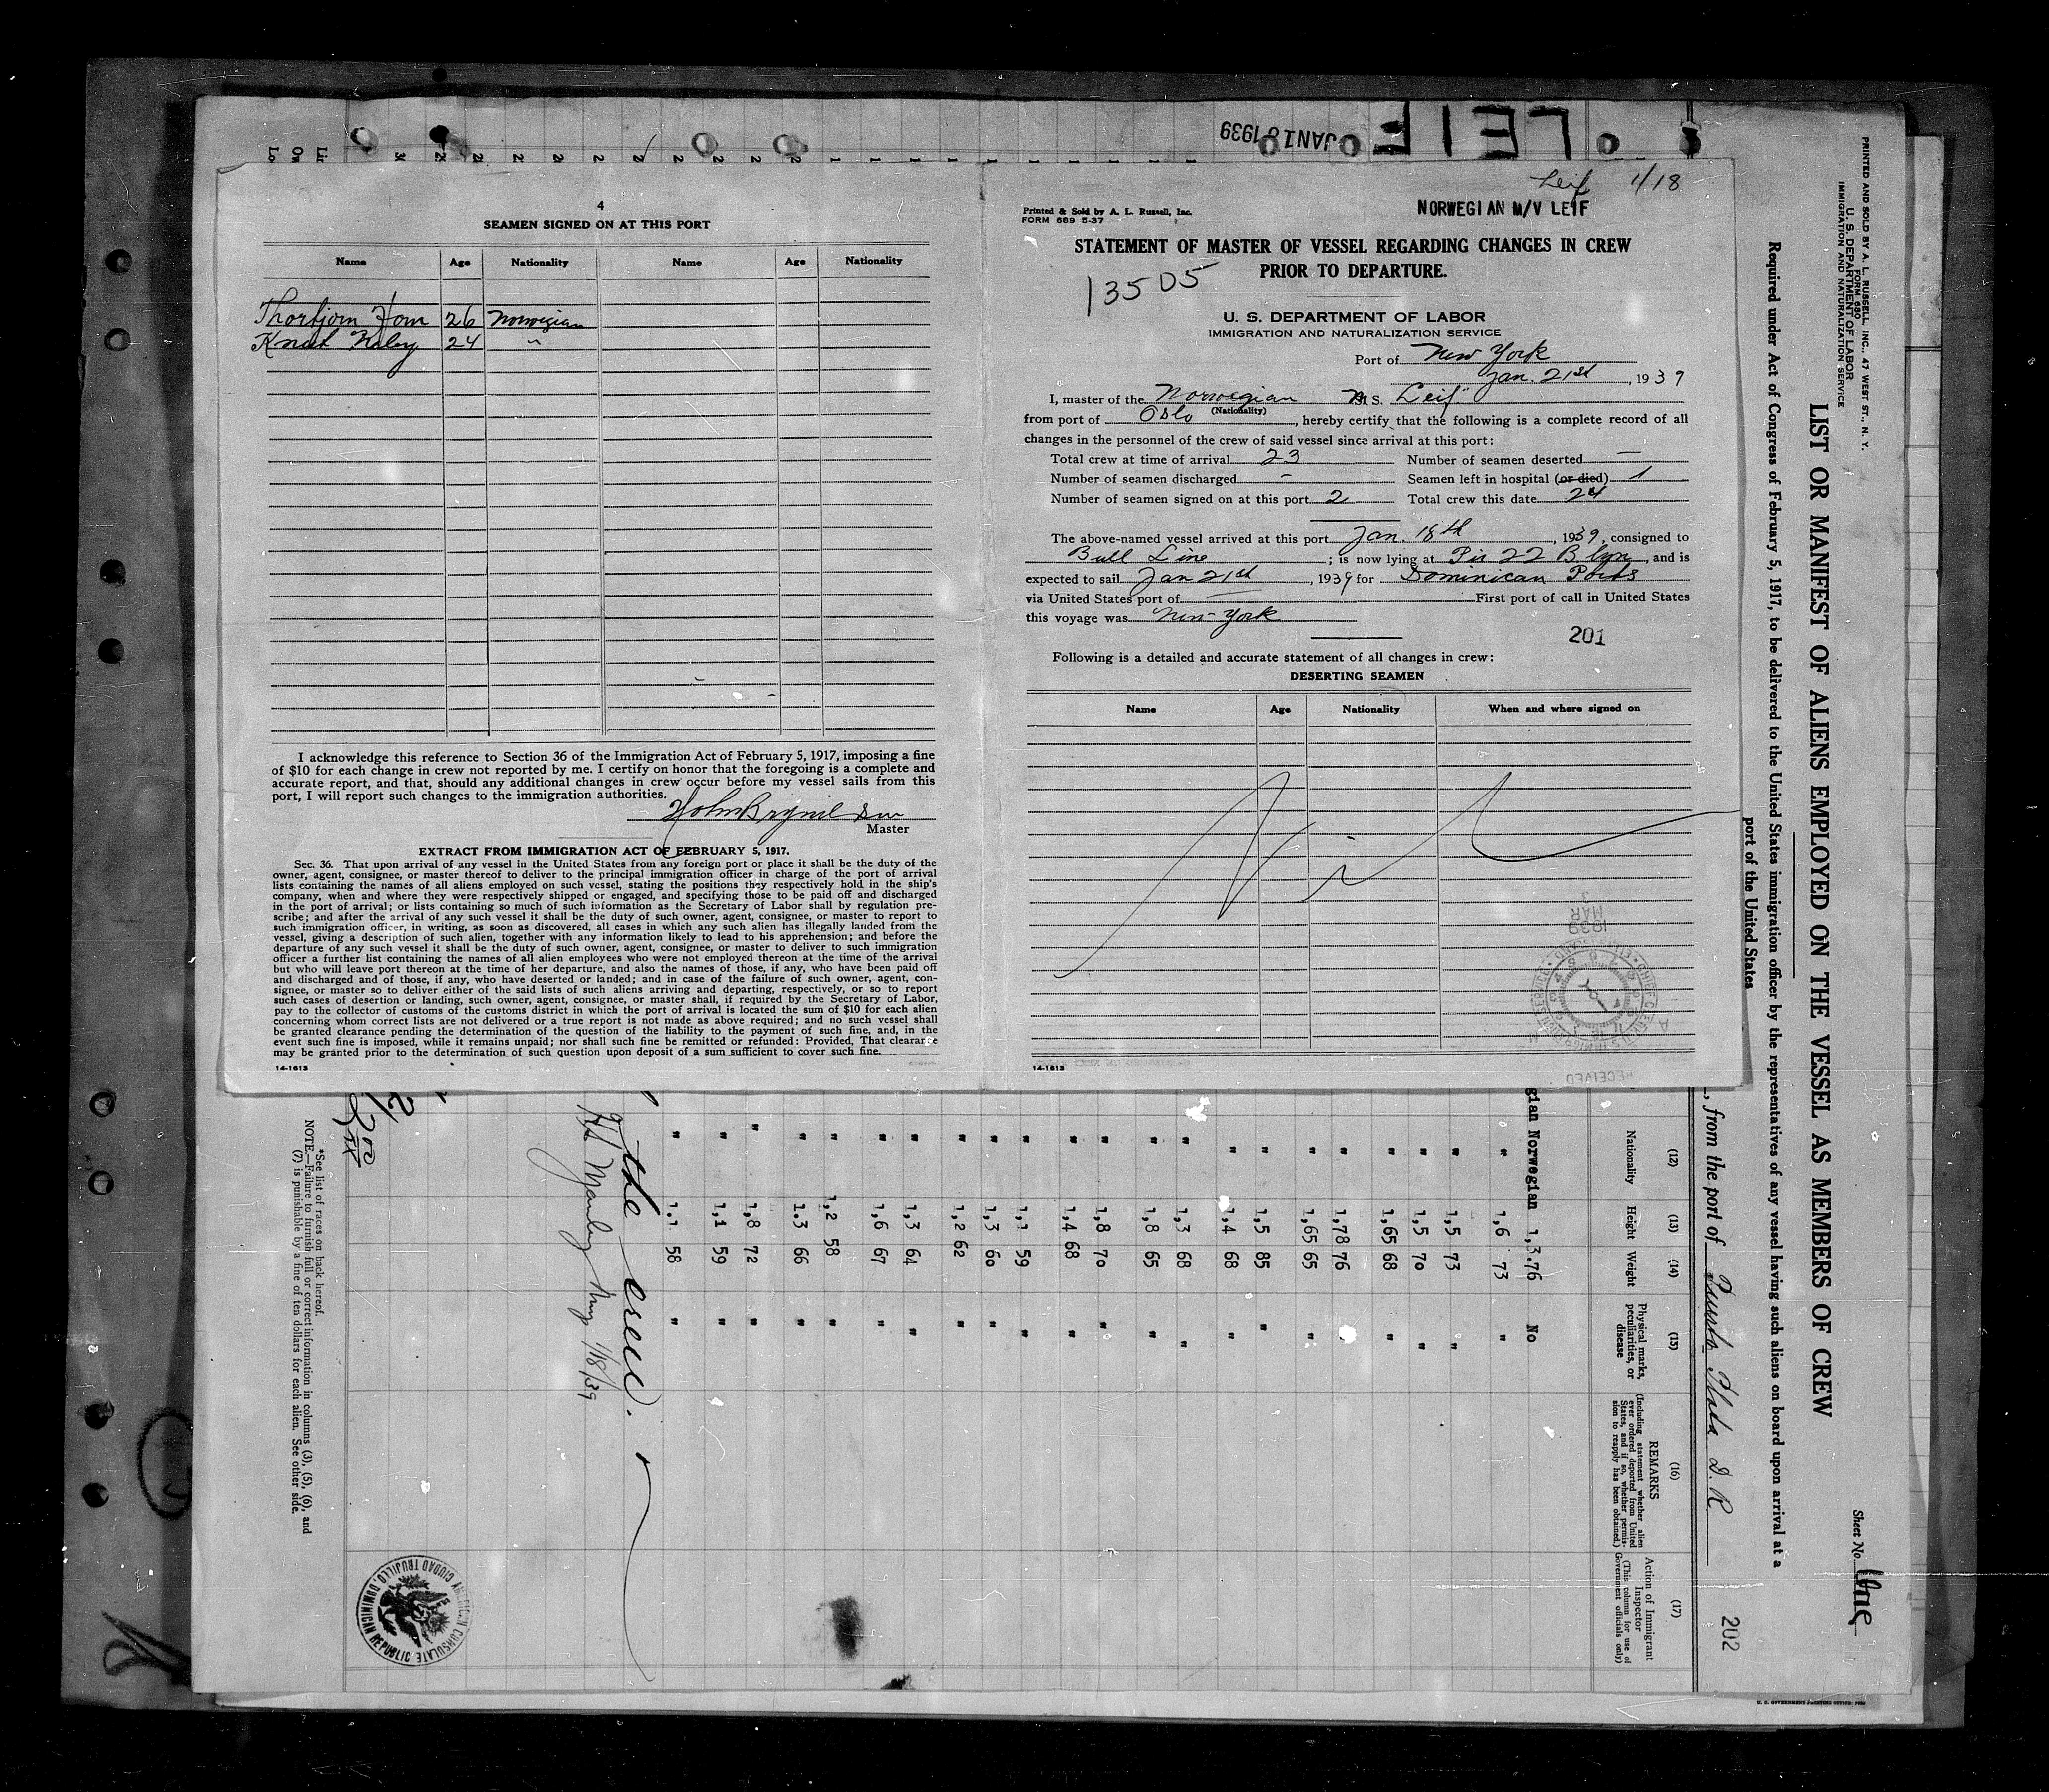 LEIF
JAN 18 1939
4
SEAMEN SIGNED ON AT THIS PORT
Name Age Nationality Name Age Nationality
Thorbjorn 26 Norwegian
Knut 24 "
I acknowledge this reference to Section 36 of the Immigration Act of February 5, 1917, imposing a fine
of $10 for each change in crew not reported by me. I certify on honor that the foregoing is a complete and
accurate report, and that, should any additional changes in crew occur before my vessel sails from this
port, I will report such changes to the immigration authorities.
Master
EXTRACT FROM IMMIGRATION ACT OF FEBRUARY 5, 1917.
Sec. 36. That upon arrival of any vessel in the United States from any foreign port or place it shall be the duty of the
owner, agent, consignee, or master thereof to deliver to the principal immigration officer in charge of the port of arrival
lists containing the names of all aliens employed on such vessel, stating the positions they respectively hold in the ship's
company, when and where they were respectively shipped or engaged, and specifying those to be paid off and discharged
in the port of arrival; or lists containing so much of such information as the Secretary of Labor shall by regulation pre-
scribe; and after the arrival of any such vessel it shall be the duty of such owner, agent, consignee, or master to report to
such immigration officer, in writing, as soon as discovered, all cases in which any such alien has illegally landed from the
vessel, giving a description of such alien, together with any information likely to lead to his apprehension; and before the
departure of any such vessel it shall be the duty of such owner, agent, consignee, or master to deliver to such immigration
officer a further list containing the names of all alien employees who were not employed thereon at the time of the arrival
but who will leave port thereon at the time of her departure, and also the names of those, if any, who have been paid off
and discharged and of those, if any, who have deserted or landed; and in case of the failure of such owner, agent, con-
signee, or master so to deliver either of the said lists of such aliens arriving and departing, respectively, or so to report
such cases of desertion or landing, such owner, agent, consignee, or master shall, if required by the Secretary of Labor,
pay to the collector of customs of the customs district in which the port of arrival is located the sum of $10 for each alien
concerning whom correct lists are not delivered or a true report is not made as above required; and no such vessel shall
be granted clearance pending the determination of the question of the liability to the payment of such fine, and, in the
event such fine is imposed, while it remains unpaid; nor shall such fine be remitted or refunded: Provided, That clearance
may be granted prior to the determination of such question upon deposit of a sum sufficient to cover such fine.
14-1613
Leif 1/18
Printed & Sold by A. L. Russell, Inc.
FORM 689 5-37
NORWEGIAN M/V LEIF
STATEMENT OF MASTER OF VESSEL REGARDING CHANGES IN CREW
PRIOR TO DEPARTURE.
13505
U. S. DEPARTMENT OF LABOR
IMMIGRATION AND NATURALIZATION SERVICE
Port of New York
Jan. 21st, 1939
I, master of the Norwegian M.S. Leif
(Nationality)
from port of Oslo, hereby certify that the following is a complete record of all
changes in the personnel of the crew of said vessel since arrival at this port:
Total crew at time of arrival 23 Number of seamen deserted —
Number of seamen discharged - Seamen left in hospital (or died) 1
Number of seamen signed on at this port 2 Total crew this date 24
The above-named vessel arrived at this port Jan. 18th, 1939, consigned to
Bull Line; is now lying at Pir 22 B'lyn, and is
expected to sail Jan 21st, 1939 for Dominican Ports
via United States port of — First port of call in United States
this voyage was New-York
201
Following is a detailed and accurate statement of all changes in crew:
DESERTING SEAMEN
Name Age Nationality When and where signed on
Nil
1939
MAR
3
RECEIVED
14-1613
PRINTED AND SOLD BY A. L. RUSSELL, INC., 47 WEST ST., N. Y.
FORM 680
U. S. DEPARTMENT OF LABOR
IMMIGRATION AND NATURALIZATION SERVICE
Sheet No. One
LIST OR MANIFEST OF ALIENS EMPLOYED ON THE VESSEL AS MEMBERS OF CREW
Required under Act of Congress of February 5, 1917, to be delivered to the United States immigration officer by the representatives of any vessel having such aliens on board upon arrival at a
port of the United States
202
, from the port of Puerto Plata D. R
(12) (13) (14) (15) (16) (17)
Nationality
Height
Weight
Physical marks, peculiarities, or disease
REMARKS
(Including statement whether alien ever ordered deported from United States, and if so, whether permission to reapply has been obtained.)
Action of Immigrant Inspector
(This column for use of Government officials only)
gian Norwegian 1,3.76 No
" 1,6 73 "
" 1,5 73 "
" 1,5 70 "
" 1,65 68 "
" 1,78 76
" 1,65 65 "
" 1,5 85 "
" 1,4 68 "
" 1,3 68 "
" 1,8 65 "
" 1,8 70 "
" 1,4 68 "
" 1,1 59 "
" 1,3 60 "
" 1,2 62 "
" 1,3 64 "
" 1,6 67 "
" 1,2 58 "
" 1.3 66 "
" 1,8 72 "
" 1,1 59 "
" 1.1 58 "
the crew.
1/18/39
*See list of races on back hereof.
NOTE.—Failure to furnish full or correct information in columns (3), (5), (6), and
(7) is punishable by a fine of ten dollars for each alien. See other side.
AMERICAN CONSULATE
CIUDAD TRUJILLO, DOMINICAN REPUBLIC
U. S. GOVERNMENT PRINTING OFFICE